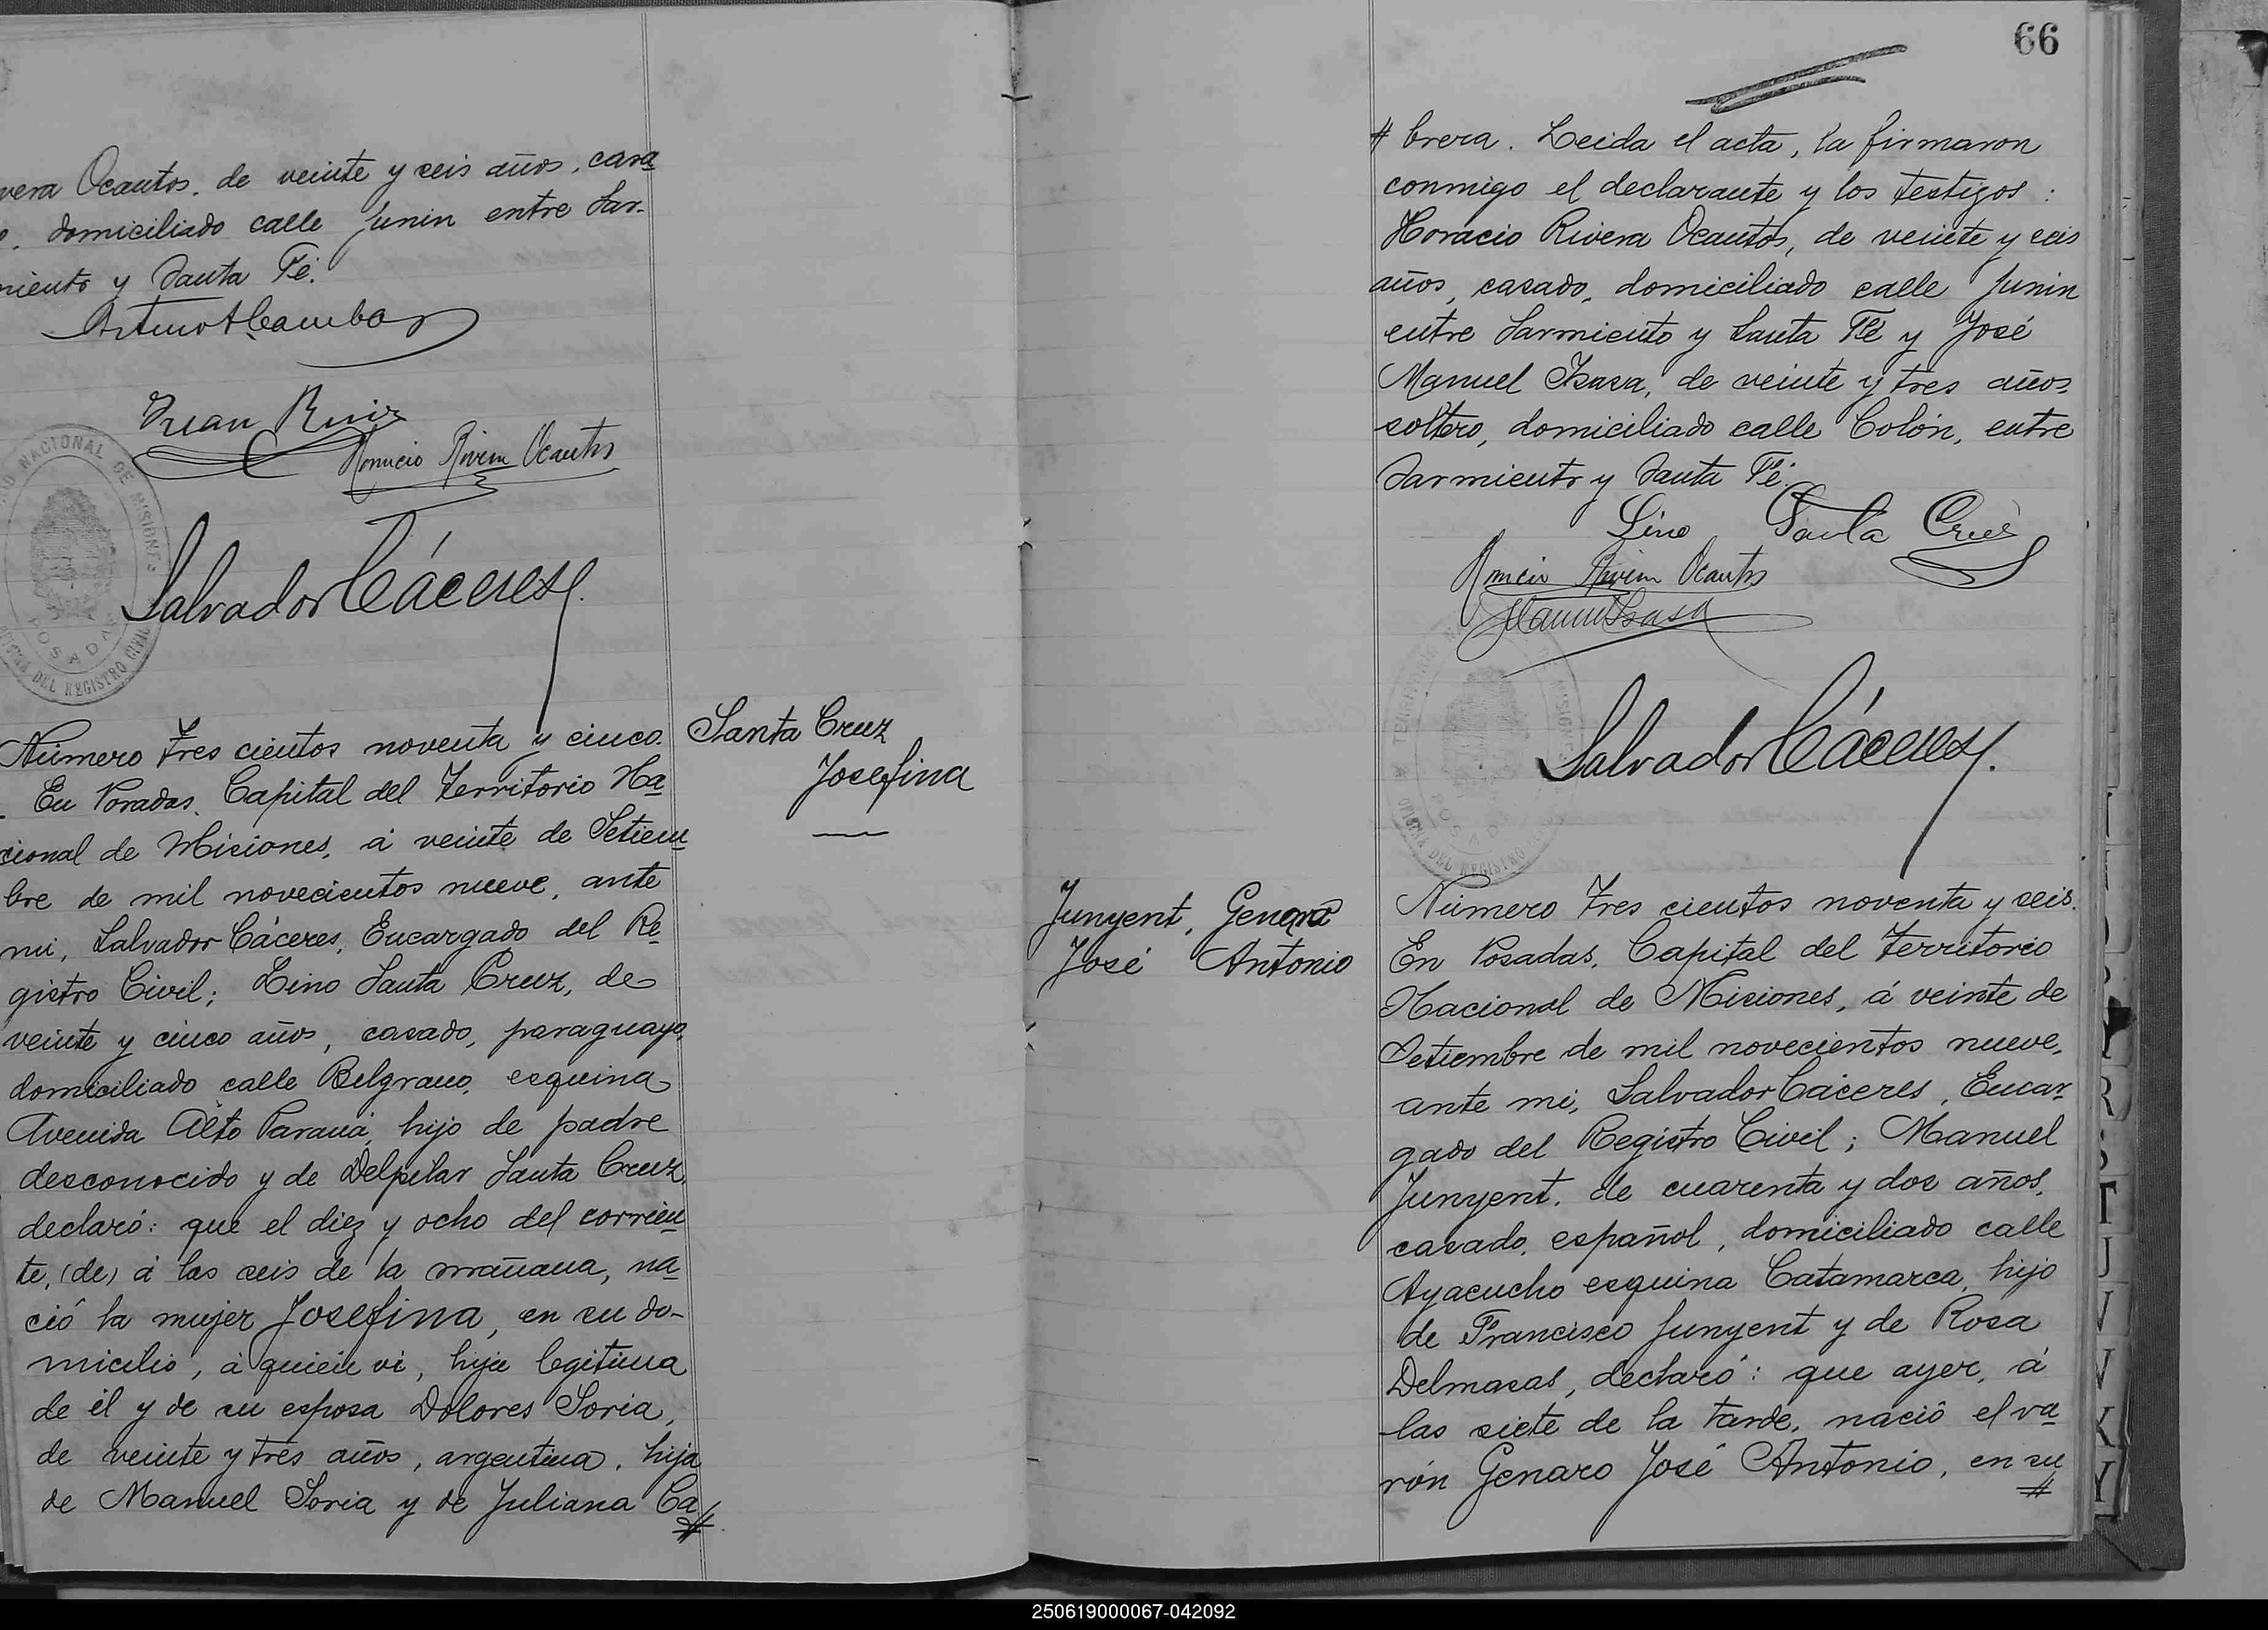 vera Ocantos, de veinte y seis años, casa
o, domiciliado calle Junin entre Sar-
miento y Santa Fé.
Juan Ruiz
Horacio Rivera Ocantos
Salvador Cáceres.
Número Tres cientos noventa y cinco.
En Posadas, Capital del Territorio Na
cional de Misiones, á veinte de Setiem
bre de mil novecientos nueve, ante
mi, Salvador Cáceres, Encargado del Re
gistro Civil; Lino Santa Cruz, de
veinte y cinco años, casado, paraguayo,
domiciliado calle Belgrano, esquina
Avenida Alto Paraná, hijo de padre
desconocido y de Delpilar Santa Cruz,
declaró: que el diez y ocho del corrien
te, (de) á las seis de la mañana, na
ció la mujer Josefina, en su do-
micilio, á quien vi, hija legitima
de él y de su esposa Dolores Soria,
de veinte y tres años, argentina, hija
de Manuel Soria y de Juliana Ca
Santa Cruz
Josefina
66
brera. Leida el acta, la firmaron
conmigo el declarante y los testigos:
Horacio Rivera Ocantos, de veinte y seis
años, casado, domiciliado calle Junin
entre Sarmiento y Santa Fé y José
Manuel Isasa, de veinte y tres años,
soltero, domiciliado calle Colón, entre
Sarmiento y Santa Fé.
Lino Santa Cruz
Horacio Rivera Ocantos
Salvador Cáceres.
Junyent, Genaro
José Antonio
Número Tres cientos noventa y seis.
En Posadas, Capital del Territorio
Nacional de Misiones, á veinte de
Setiembre de mil novecientos nueve,
ante mi, Salvador Cáceres, Encar
gado del Registro Civil; Manuel
Junyent, de cuarenta y dos años,
casado, español, domiciliado calle
Ayacucho esquina Catamarca, hijo
de Francisco Junyent y de Rosa
Delmasas, declaró: que ayer, á
las siete de la tarde, nació el va
rón Genaro José Antonio, en su
250619000067-042092